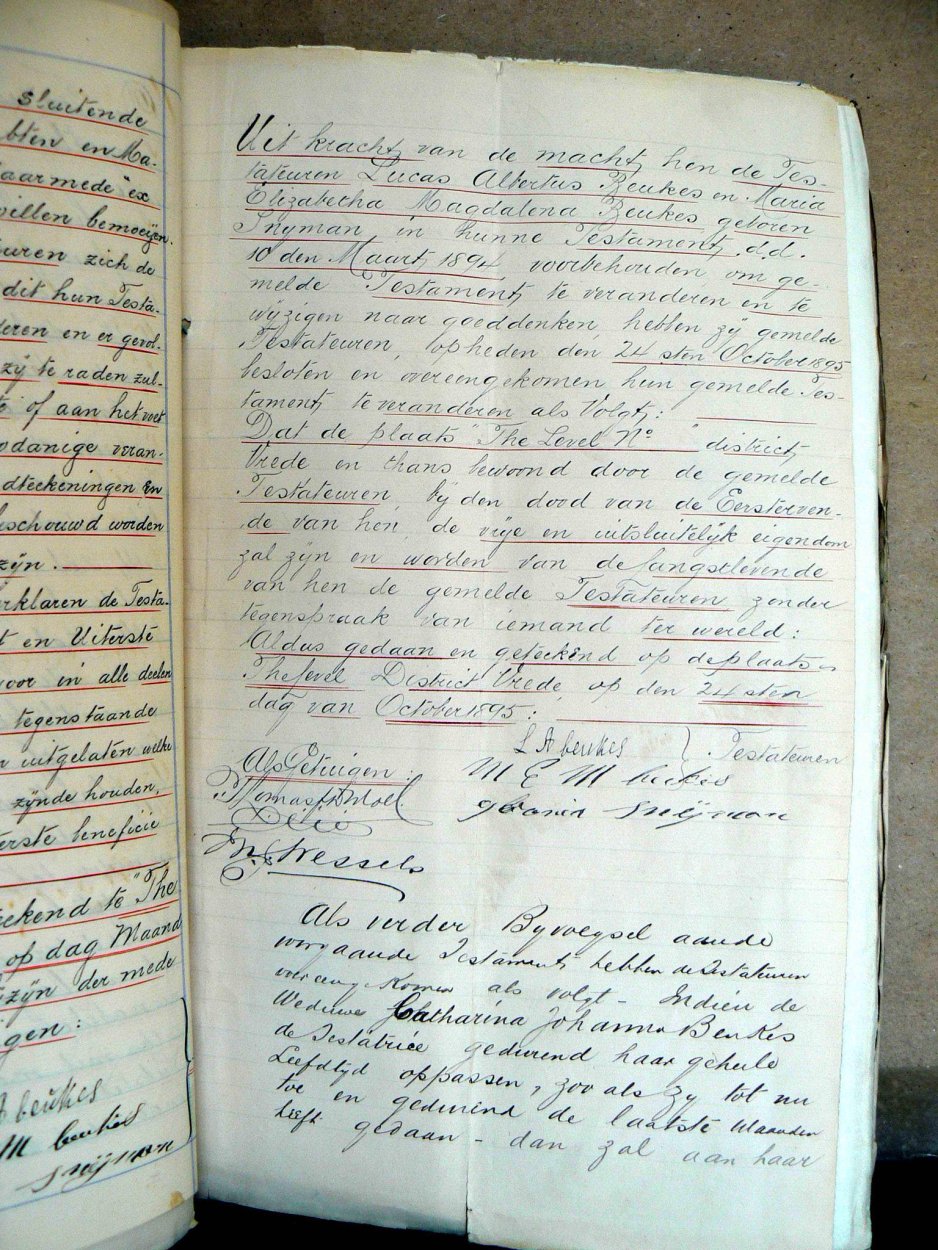 sluitende
bten en Ma-
aarmede "ex
willen bemoeijen.
uren zich de
dit hun Testa-
deren en er gevol-
zij te raden zul-
of aan het voet
odanige veran-
dteekeningen en
eschouwd worden
zijn.
rklaren de Testa-
t en Uiterste
voor in alle deelen
tegenstaande
n uitgelaten welke
zijnde houden,
erste beneficie
eekend te "The
op dag Maand
zijn der mede
gen:
A beukes
M beukes
snijman
Uit kracht van de macht, hen de Tes-
tateuren Lucas Albertus Beukes en Maria
Elizabetha Magdalena Beukes geboren
Snyman, in hunne Testament, d.d.
10 den Maart 1894 voorbehouden om ge-
melde Testament, te veranderen en te
wijzigen naar goeddenken, hebben zij gemelde
Testateuren, op heden den 24 sten October 1895
besloten en overeengekomen hun gemelde Tes-
tament, te veranderen als Volgt,:
Dat de plaats "The Level No " district,
Vrede en thans bewoond door de gemelde
Testateuren, bij den dood van de Eersterven-
de van hen, de vrije en uitsluitelijk eigendom
zal zijn en worden van de langstlevende
van hen de gemelde Testateuren zonder
tegenspraak van iemand ter wereld:
Aldus gedaan en geteekend op de plaats
The Level District Vrede, op den 24 sten
dag van October 1895:
L A beukes } Testateuren
Als Getuigen: M E M beukes
geboorin snijman
Wessels
Als verder Byvoegsel aande
voorgaande Testament, hebben de Testateuren
overeengekomen als volgt - Indien de
Weduwe Catharina Johanna Beukes
de Testatrice gedurend haar geheele
Leeftyd oppassen, zoo als zy tot nu
toe en gedurend de laatste Maanden
heeft gedaan - dan zal aan haar